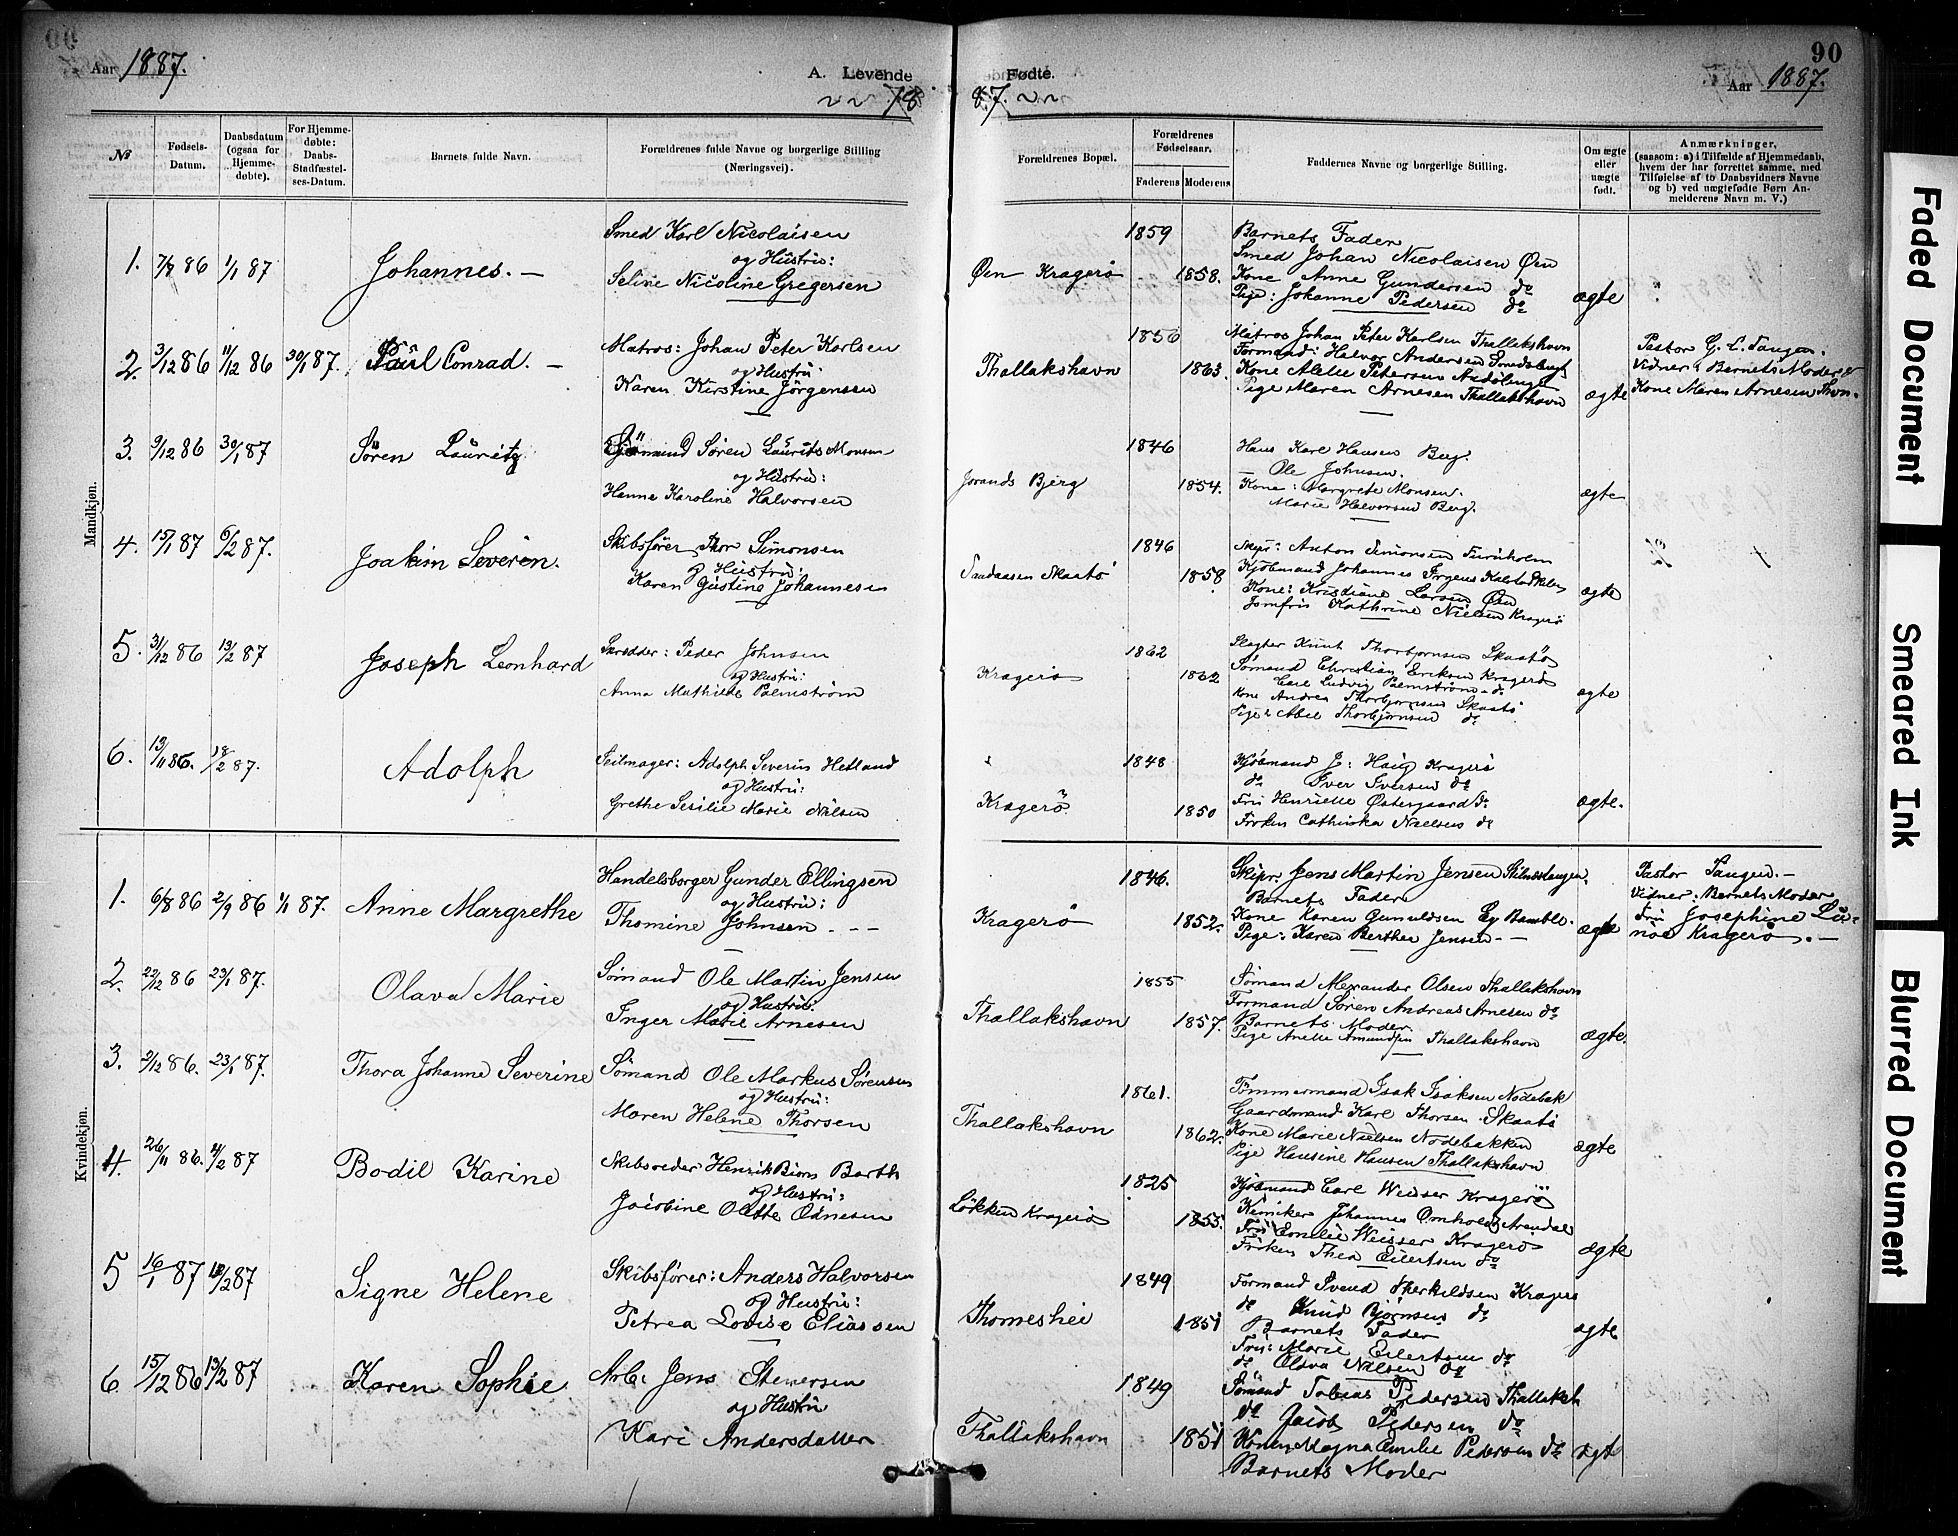 90
Aar 1887.
A. Levende Fødte.
Aar 1887.
1887.
No
Fødsels-Datum.
Daabsdatum (ogsaa for Hjemme-døbte).
For Hjemme-døbte: Daabs-Stadfæstel-ses-Datum.
Barnets fulde Navn.
Forældrenes fulde Navne og borgerlige Stilling (Næringsvei).
Forældrenes Bopæl.
Forældrenes Fødselsaar.
Faderens
Moderens
Faddernes Navne og borgerlige Stilling.
Om ægte eller uægte født.
Anmærkninger,
(saasom: a) i Tilfælde af Hjemmedaab, hvem der har forrettet samme, med Tilføielse af to Daabsvidners Navne og b) ved uægtefødte Børn An-melderens Navn m. V.)
Mandkjøn.
1. 7/8 86 1/1 87 Johannes. —
Smed Karl Nicolaisen
og Hustru:
Seline Nicoline Gregersen
Øen Kragerø
1859
1858.
Barnets Fader
Smed Johan Nicolaisen Øen
Kone Anne Gundersen do
Pige: Johanne Pedersen do
ægte
2. 3/12 86 11/12 86 30/1 87. Paul Conrad. —
Matros: Johan Peter Karlsen
og Hustru:
Karen Kirstine Jörgensen
Thallakshavn
1856
1863.
Matros Johan Peter Karlsen Thallakshavn
Formand: Halvor Andersen
Kone Petersen
Pige Maren Arnesen Thallakshavn
ægte
Pastor G. C. Tangen.
Vidner: Barnets Moder &
Kone Maren Arnesen Thvn.
3. 9/12 86 30/1 87 Sören Lauritz
Sören Laurits Monsen
og Hustru:
Hanne Karoline Halvorsen
Jorands Bjerg
1846
1854.
Hans Karl Hansen Berg.
— Ole Johnsen.
Kone: Margrete Monsen.
Marie Halvorsen Berg.
ægte
4. 15/1 87 6/2 87. Joakim Severin.
Skibsfører Thor Simonsen
og Hustru:
Karen Gustine Johannesen
Skaatö
1846
1858
Skipr: Anton Simonsen Furuholm
Kjöbmand Johannes
Kone: Kristiane Larsen Øen
Jomfru Kathrine Nielsen Kragerø
ægte
5. 31/12 86 13/2 87 Joseph Leonhard
Skrædder: Peder Johnsen
og Hustru:
Anna Mathilde Palmström
Kragerø
1862
1862
Slagter Knut Thorbjørnsen Skaatö
Sömand Christian Eriksen Kragerö
Carl Ludvig Palmstrøm do
Kone Andrea Thorbjørnsen Skaatö
Pige: Abel Thorbjørnsen do
ægte
6. 13/11 86. 18/2 87. Adolph
Seilmager: Adolph Severin Hetland
og Hustru:
Grethe Sesilie Marie Nilsen
Kragerö
1848
1850
Kjöbmand J: Haig Kragerö
do Iver Iversen do
Fru Henriette Østergaard do
Frøken Cathinka Nielsen do
ægte.
Kvindekjøn.
1. 6/8 86 2/9 86 1/1 87. Anne Margrethe
Handelsborger Gunder Ellingsen
og Hustru:
Thomine Johnsen
Kragerø
1846.
1852.
Skipr. Jens Martin Jensen
Barnets Fader
Kone Karen Gunuldsen Ey Bamble.
Pige: Karen Berthea Jensen —
ægte
Pastor Tangen. —
Vidner: Barnets Moder
Fru Josephine Lü-
nøe Kragerø. —
2. 22/12 86 23/1 87. Olava Marie
Sømand Ole Martin Jensen
og Hustru:
Inger Marie Arnesen
Thallakshavn
1855
1857.
Sömand Alexander Olsen Thallakshavn
Formand Sören Andreas Arnesen do
Barnets Moder
Pige Anette Amundsen Thallakshavn
ægte.
3. 2/12 86. 23/1 87. Thora Johanne Severine
Sömand Ole Markus Sörensen
og Hustru:
Maren Helene Thorsen
Thallakshavn
1861.
1862.
Tømmermand Isak Isaksen Nodebak
Gaardmand Karl Thorsen Skaatö
Kone Marie Nielsen Nodebakken
Pige Hansine Hansen Thallakshavn
ægte
4. 26/11 86. 2/2 87 Bodil Karine
Skibsreder Henrik Biørn Barth
og Hustru:
Jacobine Olette Ednesen
Løkken Kragerø
1825
1855.
Kjøbmand Carl Weisser Kragerö
Kemiker Johannes Omholt Arendal
Fru Emilie Weisser Kragerö
Frøken Thea Eilertsen do
ægte
5 16/1 87 18/2 87 Signe Helene
Skibsfører: Anders Halvorsen
og Hustru:
Petrea Lovise Eliassen
Thomeshei
1849
1851
Formand Svend Therkildsen Kragerø
do Knud Bjørnsen do
Barnets Fader
Fru: Marie Eilertsen do
do Olava Nielsen do
ægte
6 15/12 86 13/2 87 Karen Sophie
Arb: Jens Stenersen
og Hustru
Kari Andersdatter
Thallakshavn
1849
1851
Sömand Tobias Pedersen Thallaksh
do Jacob Pedersen do
Konen Magna Emilie Pedersen do
Barnets Moder
ægte
Faded Document
Smeared Ink
Blurred Document